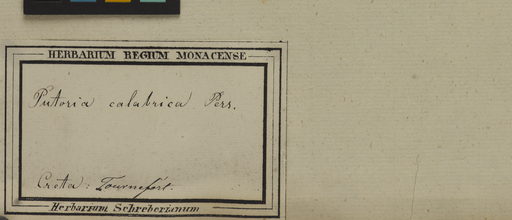 HERBARIUM REGIUM MONACENSE
Putoria calabrica Pers.
Creta: Tournefort.
Herbarium Schreberianum